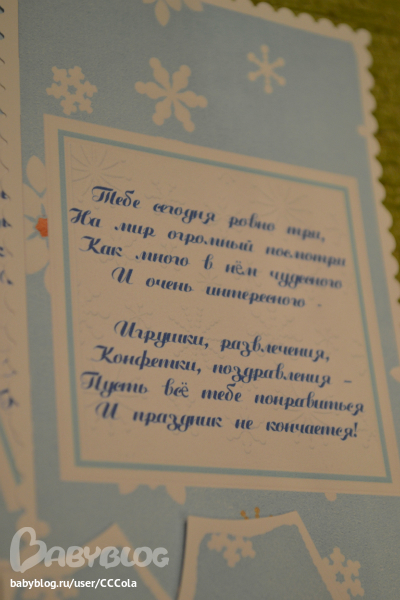 Тебе сегодня ровно три,
На мир огромный посмотри
Как много в нём чудесного
И очень интересного .
Игрушки, развлечения,
Конфетки, поздравления -
Пусть всё тебе понравиться
И праздник не кончается!
BABYBLOG
babyblog.ru/user/CCCola